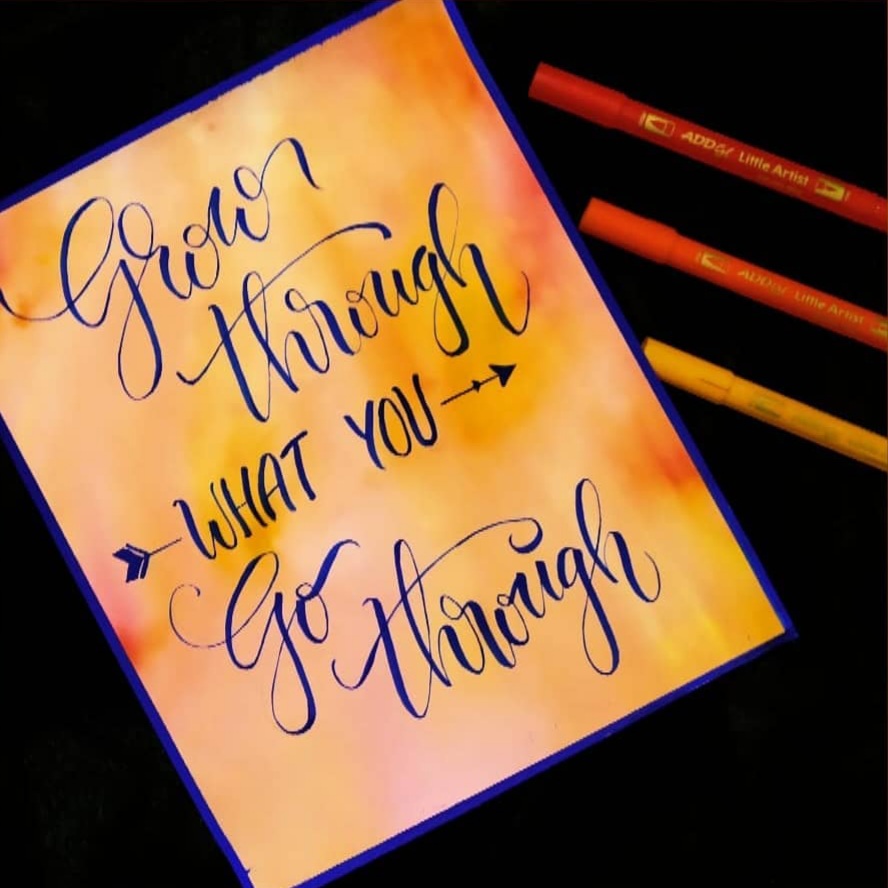 Grow
through
WHAT YOU
Go through
ADDGEL Little Artist
ADDGEL Little Artist